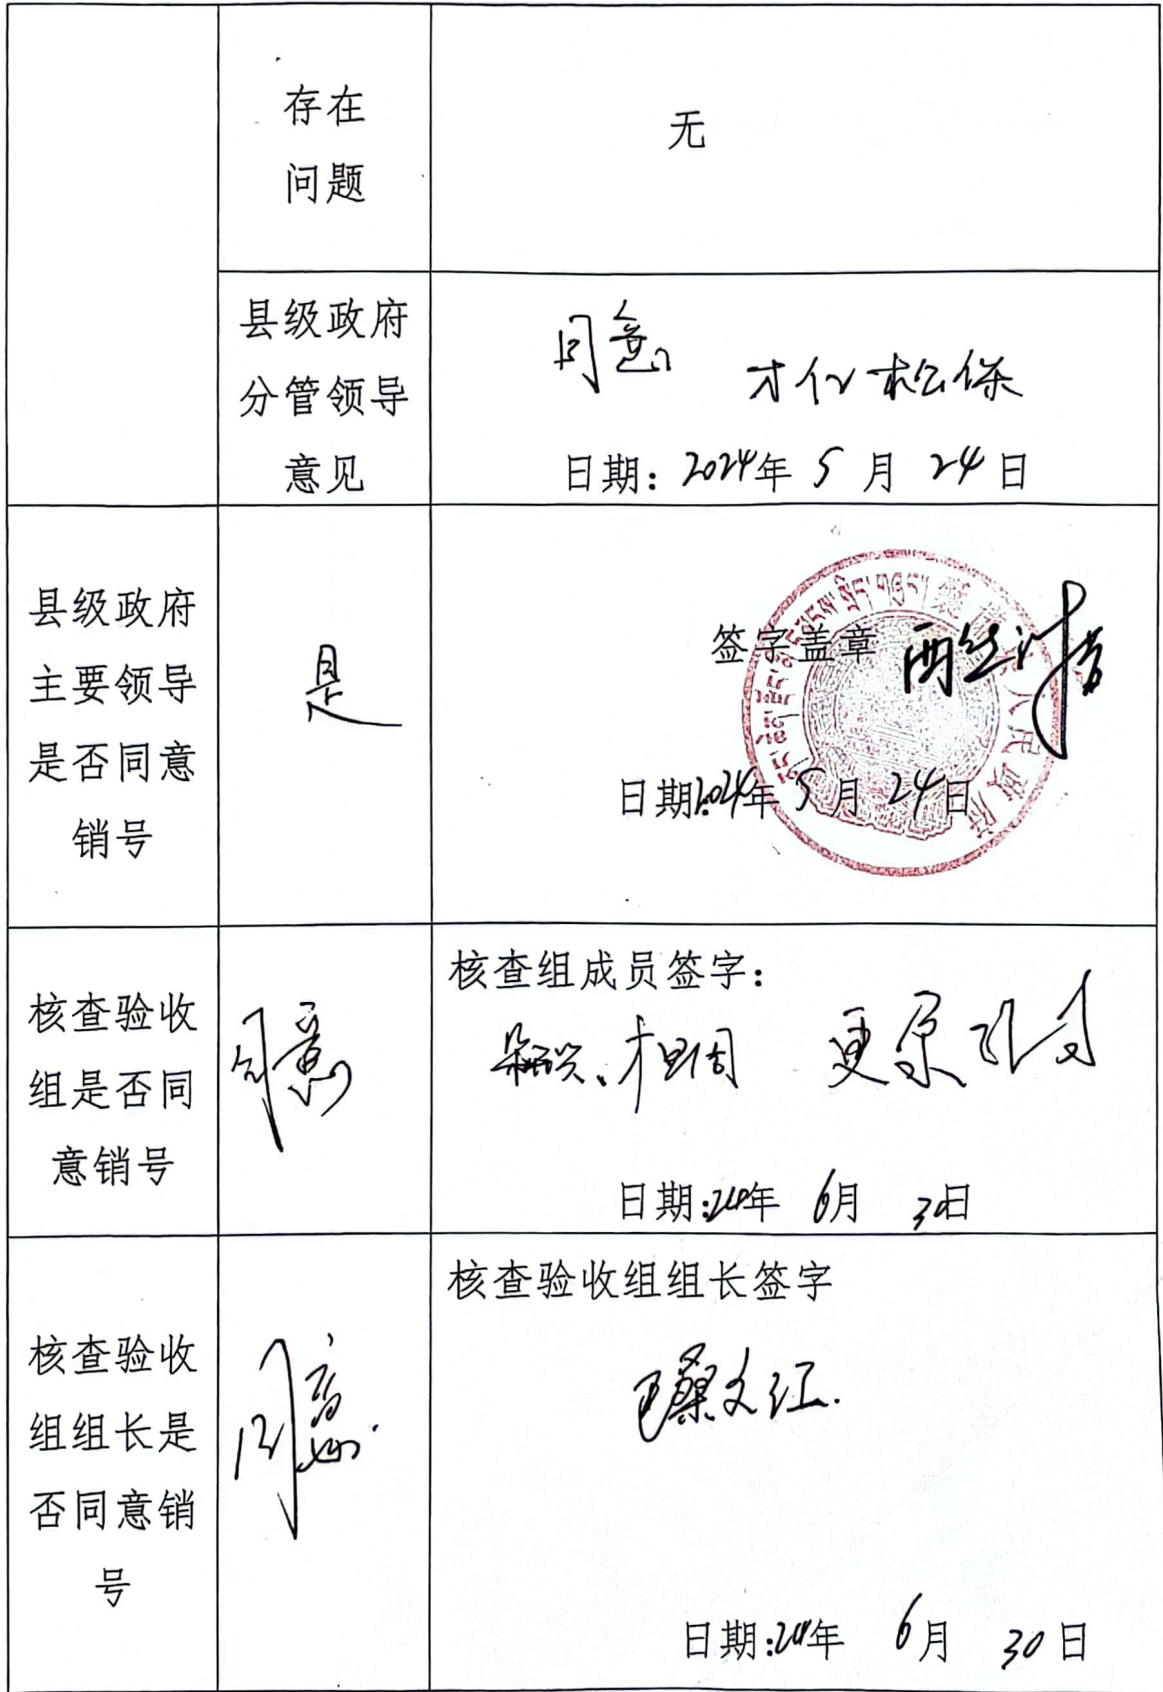 存在
问题
无
县级政府
分管领导
意见
同意
才仁松保
日期：2024年 5 月 24 日
县级政府
主要领导
是否同意
销号
是
签字盖章
人民政府
日期2024年 5 月 24日
核查验收
组是否同
意销号
同意
核查组成员签字：
日期：24年 6月 30日
核查验收
组组长是
否同意销
号
同意
核查验收组组长签字
日期：24年 6月 30日